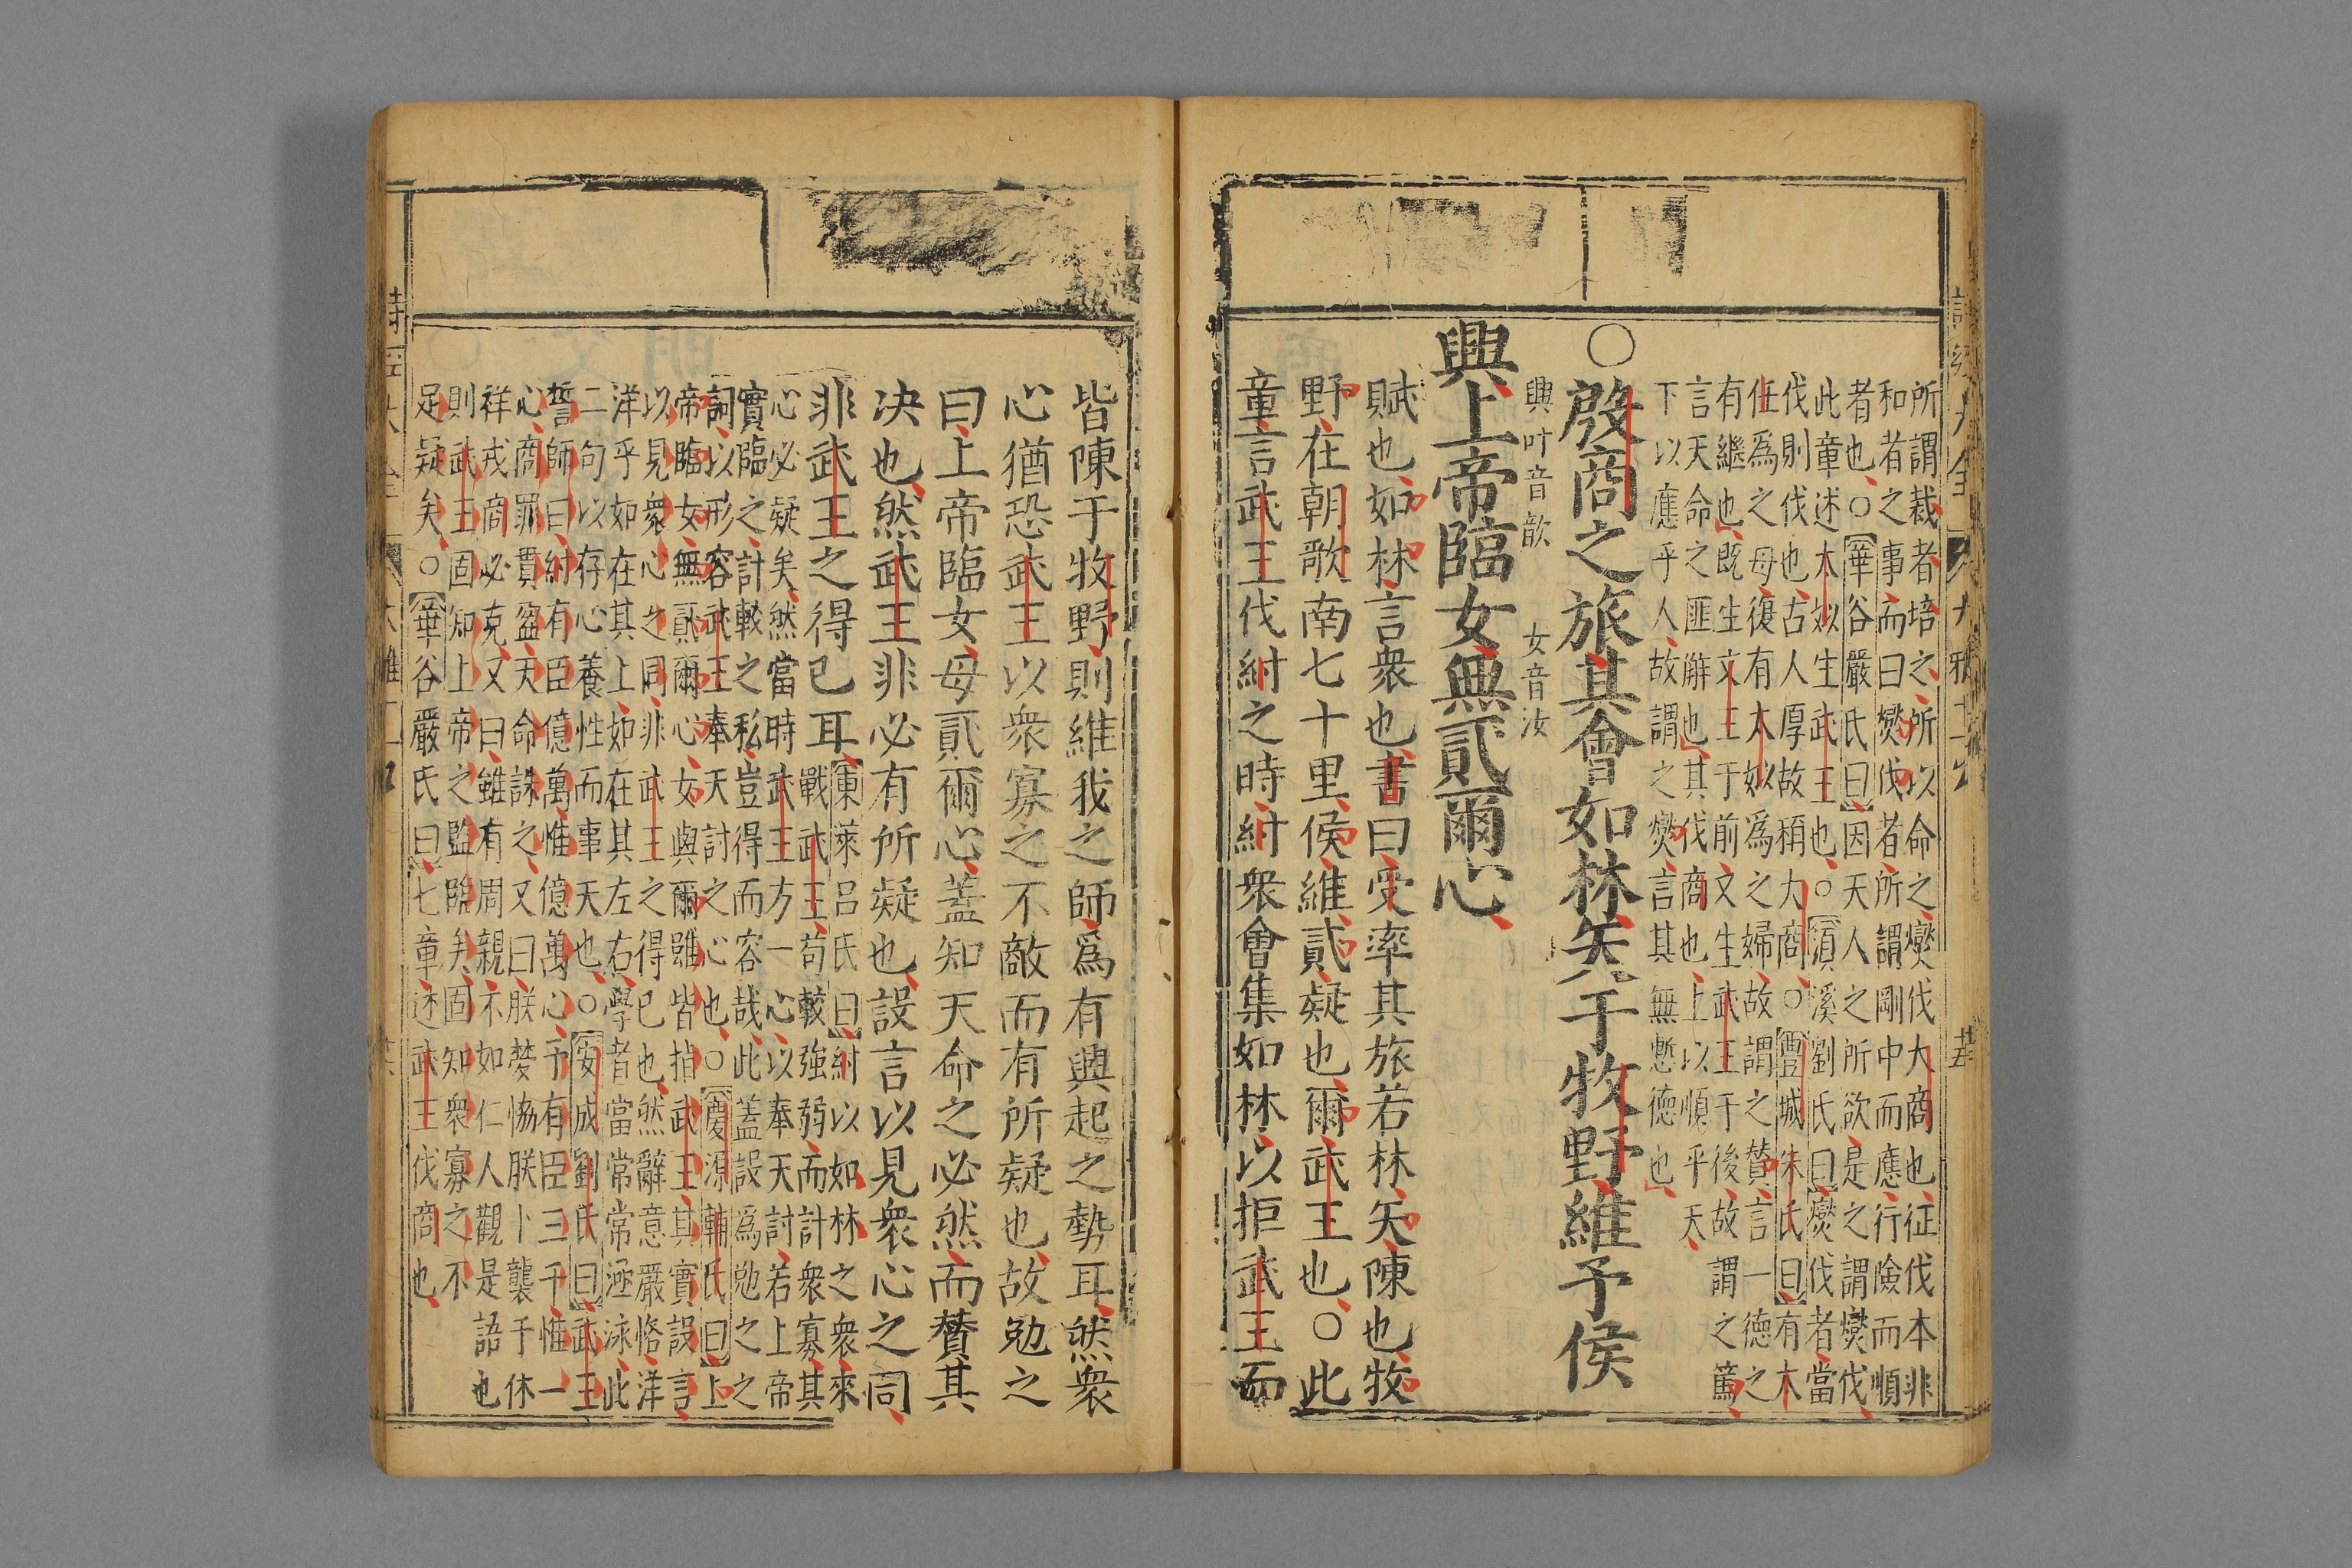 所謂裁者培之所以命之燮伐大商也征伐本非
和者之事而曰燮伐者所謂剛中而應行險而順
者也○華谷嚴氏曰因天人之所欲是之謂燮伐
此章述太姒生武王也○須溪劉氏曰燮伐者當
伐則伐也古人厚故稱力商○豐城朱氏曰有太
任爲之母復有太姒爲之婦故謂之贊言一德之
有繼也旣生文王于前又生武王于後故謂之篤
言天命之匪解也其伐商也上以順乎天
下以應乎人故謂之燮言其無慙德也
○殷商之旅其會如林矢于牧野維予侯
興叶音歆 女音汝
興上帝臨女無貳爾心
賦也如林言衆也書曰受率其旅若林矢陳也牧
野在朝歌南七十里侯維貳疑也爾武王也○此
章言武王伐紂之時紂衆會集如林以拒武王而
皆陳于牧野則維我之師爲有興起之勢耳然衆
心猶恐武王以衆寡之不敵而有所疑也故勉之
曰上帝臨女毋貳爾心蓋知天命之必然而贊其
决也然武王非必有所疑也設言以見衆心之同
非武王之得已耳東萊呂氏曰紂以如林之衆來
戰武王苟較強弱而計衆寡其
心必疑矣然當時武王方一心以奉天討若上帝
實臨之計較之私豈得而容哉此蓋設爲勉之之
詞以形容武王奉天討之心也○慶源輔氏曰上
帝臨女無貳爾心女與爾雖皆指武王其實設言
以見衆心之同非武王之得已也然辭意嚴恪洋
洋乎如在其上如在其左右學者當常常涵泳此
二句以存心養性而事天也○安成劉氏曰武王
誓師曰紂有臣億萬惟億萬心予有臣三千惟一
心商罪貫盈天命誅之又曰朕夢協朕卜襲于休
祥戎商必克又曰雖有周親不如仁人觀是語也
則武王固知上帝之監臨矣固知衆寡之不
足疑矣○華谷嚴氏曰七章述武王伐商也